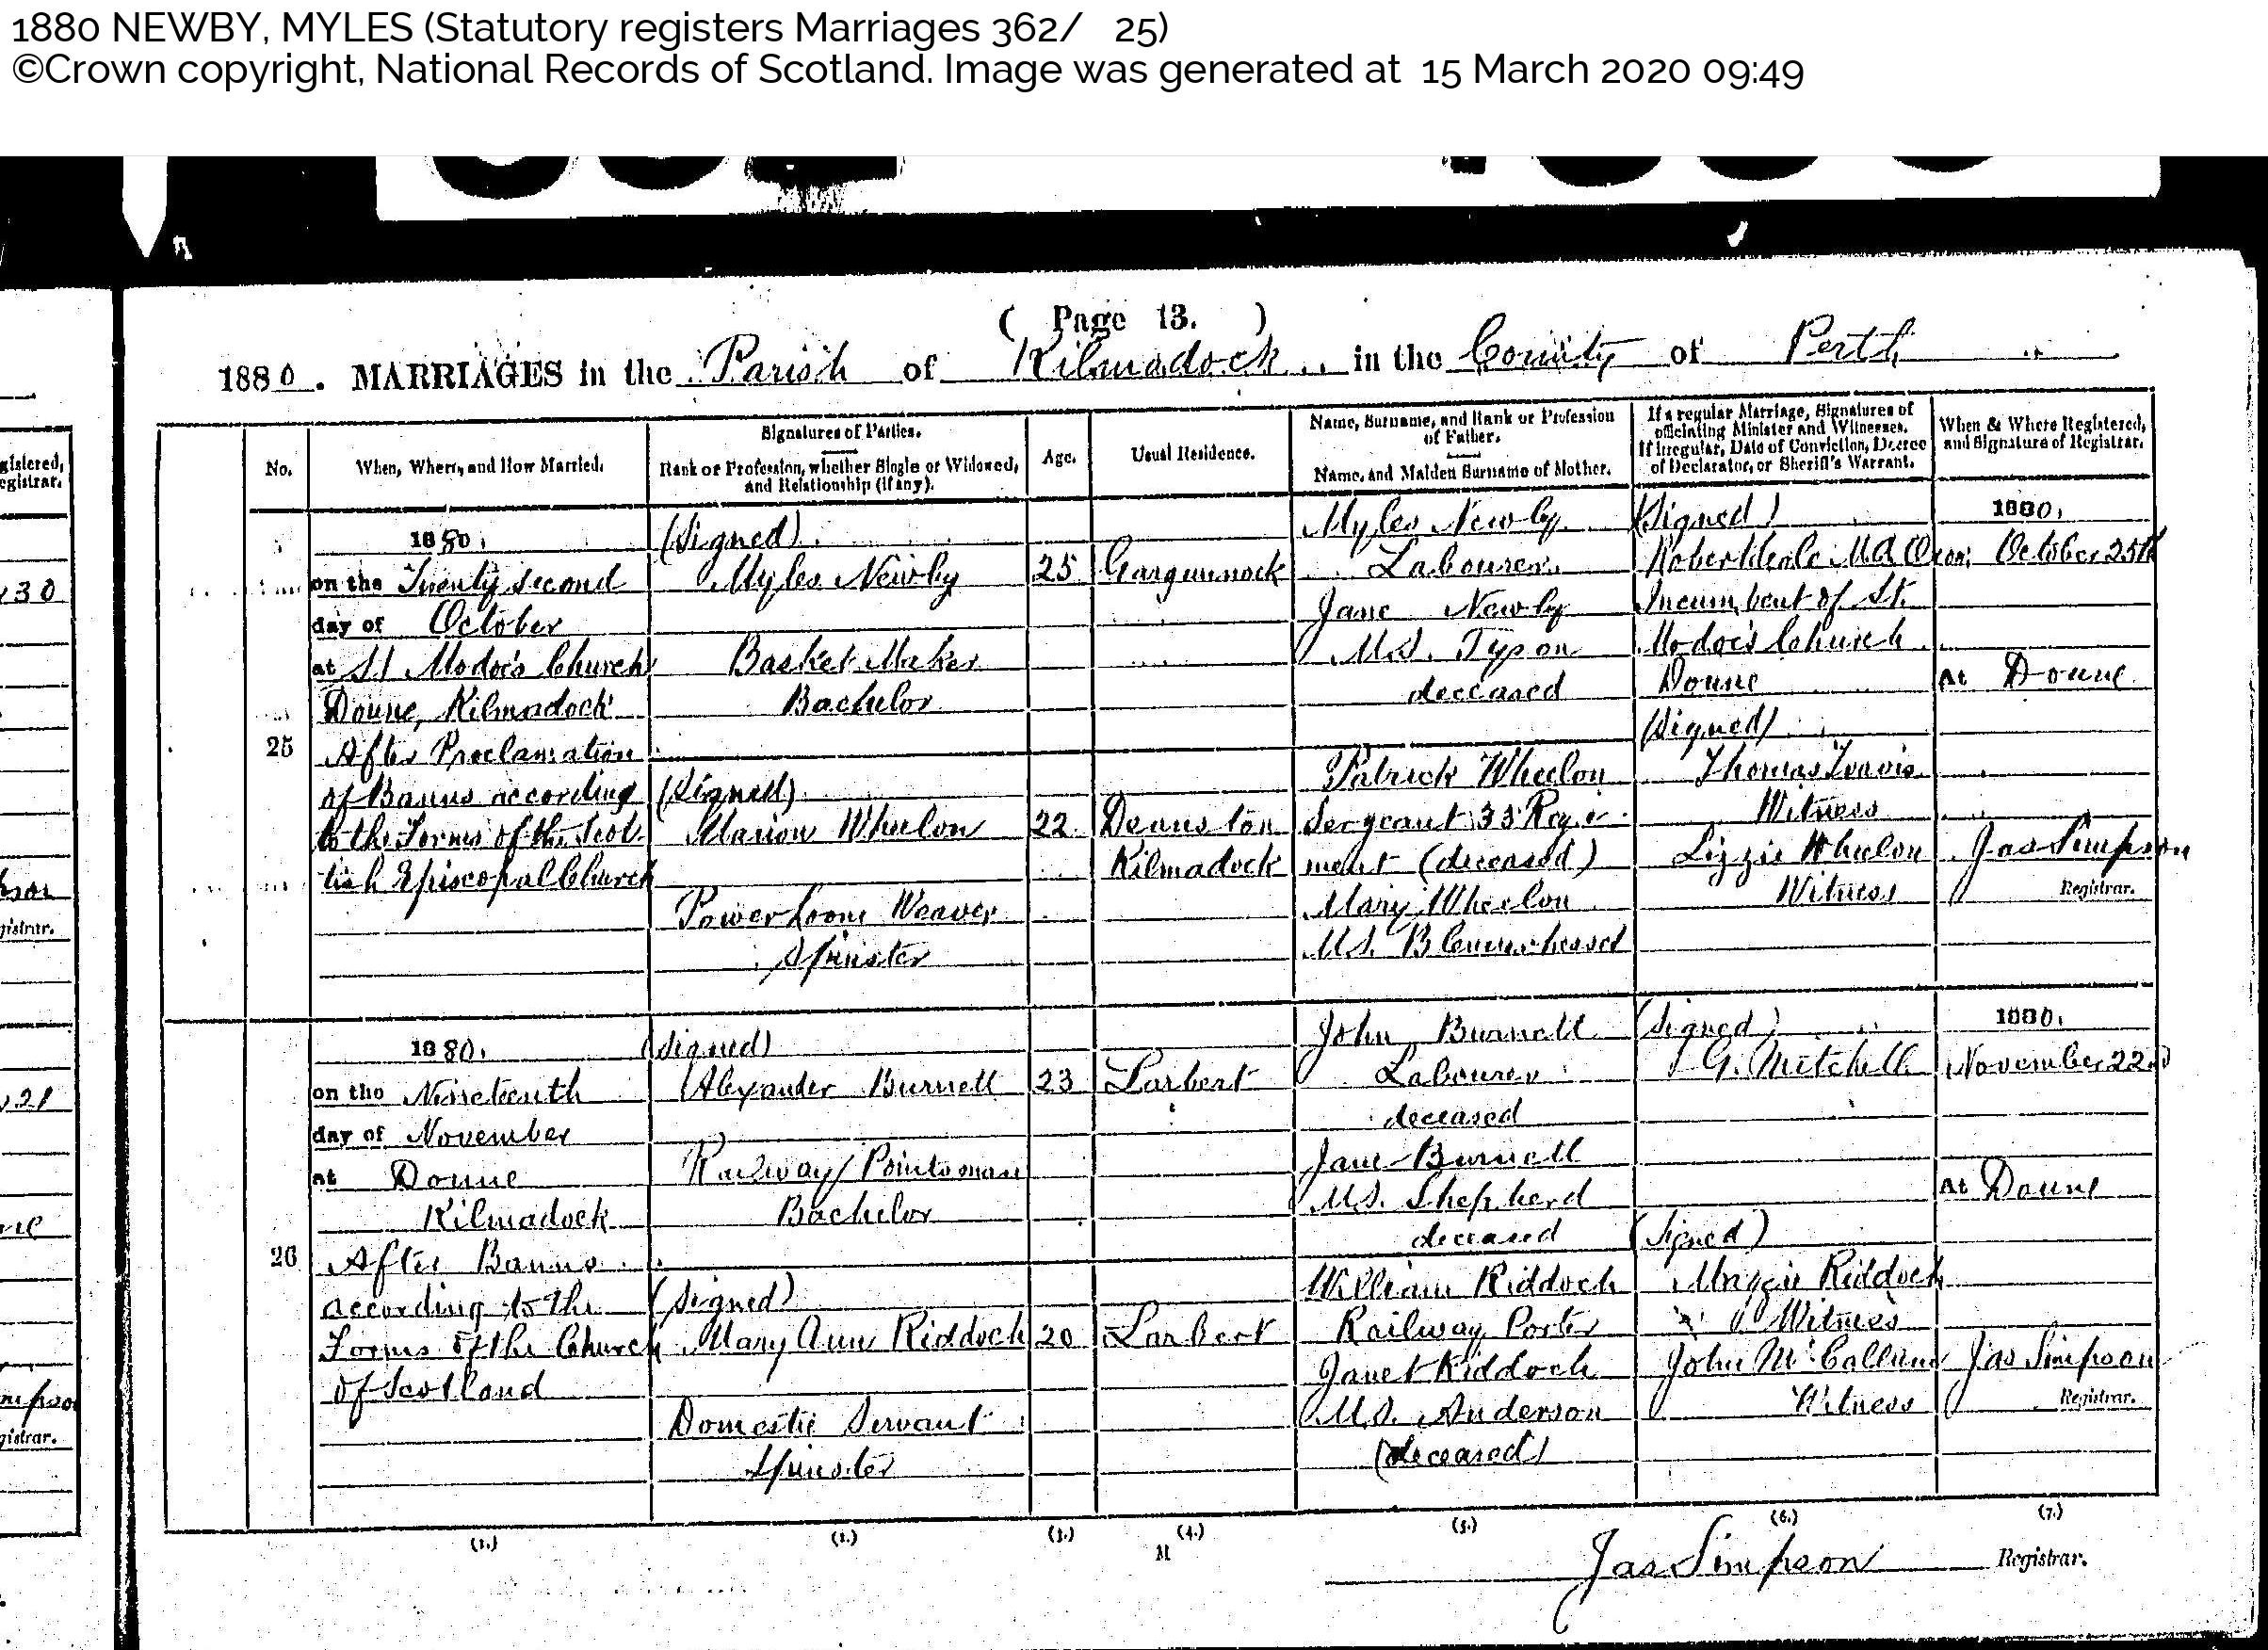 1880 NEWBY, MYLES (Statutory registers Marriages 362/ 25)
©Crown copyright, National Records of Scotland. Image was generated at 15 March 2020 09:49
( Page 13. )
1880. MARRIAGES in the Parish of Kilmadock in the County of Perth
No.
When, Where, and How Married.
Signatures of Parties.
Rank or Profession, whether Single or Widowed,
and Relationship (if any).
Age.
Usual Residence.
Name, Surname, and Rank or Profession
of Father.
Name, and Maiden Surname of Mother.
If a regular Marriage, Signatures of
officiating Minister and Witnesses.
If irregular, Date of Conviction, Decree
of Declarator, or Sheriff's Warrant.
When & Where Registered,
and Signature of Registrar.
25
1880.
on the Twenty second
day of October
at St Modoc's Church
Doune, Kilmadock
After Proclamation
of Banns according
to the Forms of the Scot
tish Episcopal Church
(Signed)
Myles Newby
Basket Maker
Bachelor
(Signed)
Marion Wheelon
Power Loom Weaver
Spinster
25
22
Gargunnock
Deanston
Kilmadock
Myles Newby
Labourer
Jane Newby
M.S. Tyson
deceased
Patrick Wheelon
Sergeant 33 Regi
ment (deceased)
Mary Wheelon
M.S.
(Signed)
Robert M.A. Oxon;
Incumbent of St.
Modoc's Church
Doune
(Signed)
Thomas Travis
Witness
Lizzie Wheelon
Witness
1880.
October 25th
At Doune
Jas Simpson
Registrar.
26
1880.
on the Nineteenth
day of November
at Doune
Kilmadock
After Banns
according to the
Forms of the Church
of Scotland
(Signed)
Alexander Burnett
Railway Pointsman
Bachelor
(Signed)
Mary Ann Riddoch
Domestic Servant
Spinster
23
20
Larbert
Larbert
John Burnett
Labourer
deceased
Jane Burnett
M.S. Shepherd
deceased
William Riddoch
Railway Porter
Janet Riddoch
M.S. Anderson
(deceased)
(Signed)
G. Mitchell
(Signed)
Maggie Riddoch
Witness
John McCallum
Witness
1880.
November 22nd
At Doune
Jas Simpson
Registrar.
(1.) (2.) (3.) (4.) (5.) (6.) (7.)
M
Jas Simpson Registrar.